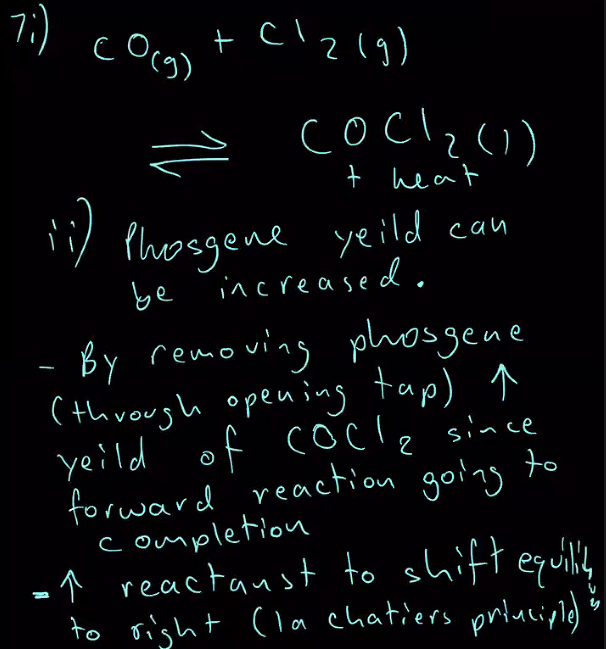 7i) CO(g) + Cl2(g)
⇌ COCl2(l)
+ heat
ii) Phosgene yeild can
be increased.
- By removing phosgene
(through opening tap) ↑
yeild of COCl2 since
forward reaction going to
completion
- ↑ reactanst to shift equilib
to right (la chatiers principle)